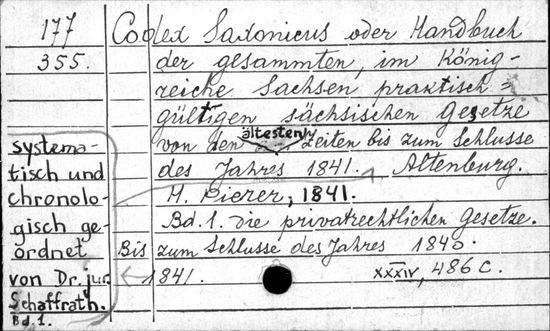 177
355.
Codex Saxonicus oder Handbuch
der gesammten, im König-
reiche Sachsen praktisch=
gültigen sächsischen Gesetze
von den ältesten Zeiten bis zum Schlusse
des Jahres 1841. Altenburg.
H. Pierer, 1841.
Bd. 1. Die privatrechtlichen Gesetze.
Bis zum Schlusse des Jahres 1840.
1841. XXXIV, 486 c.
systema-
tisch und
chronolo-
gisch ge-
ordnet
von Dr. jur.
Schaffrath.
Bd. 1.